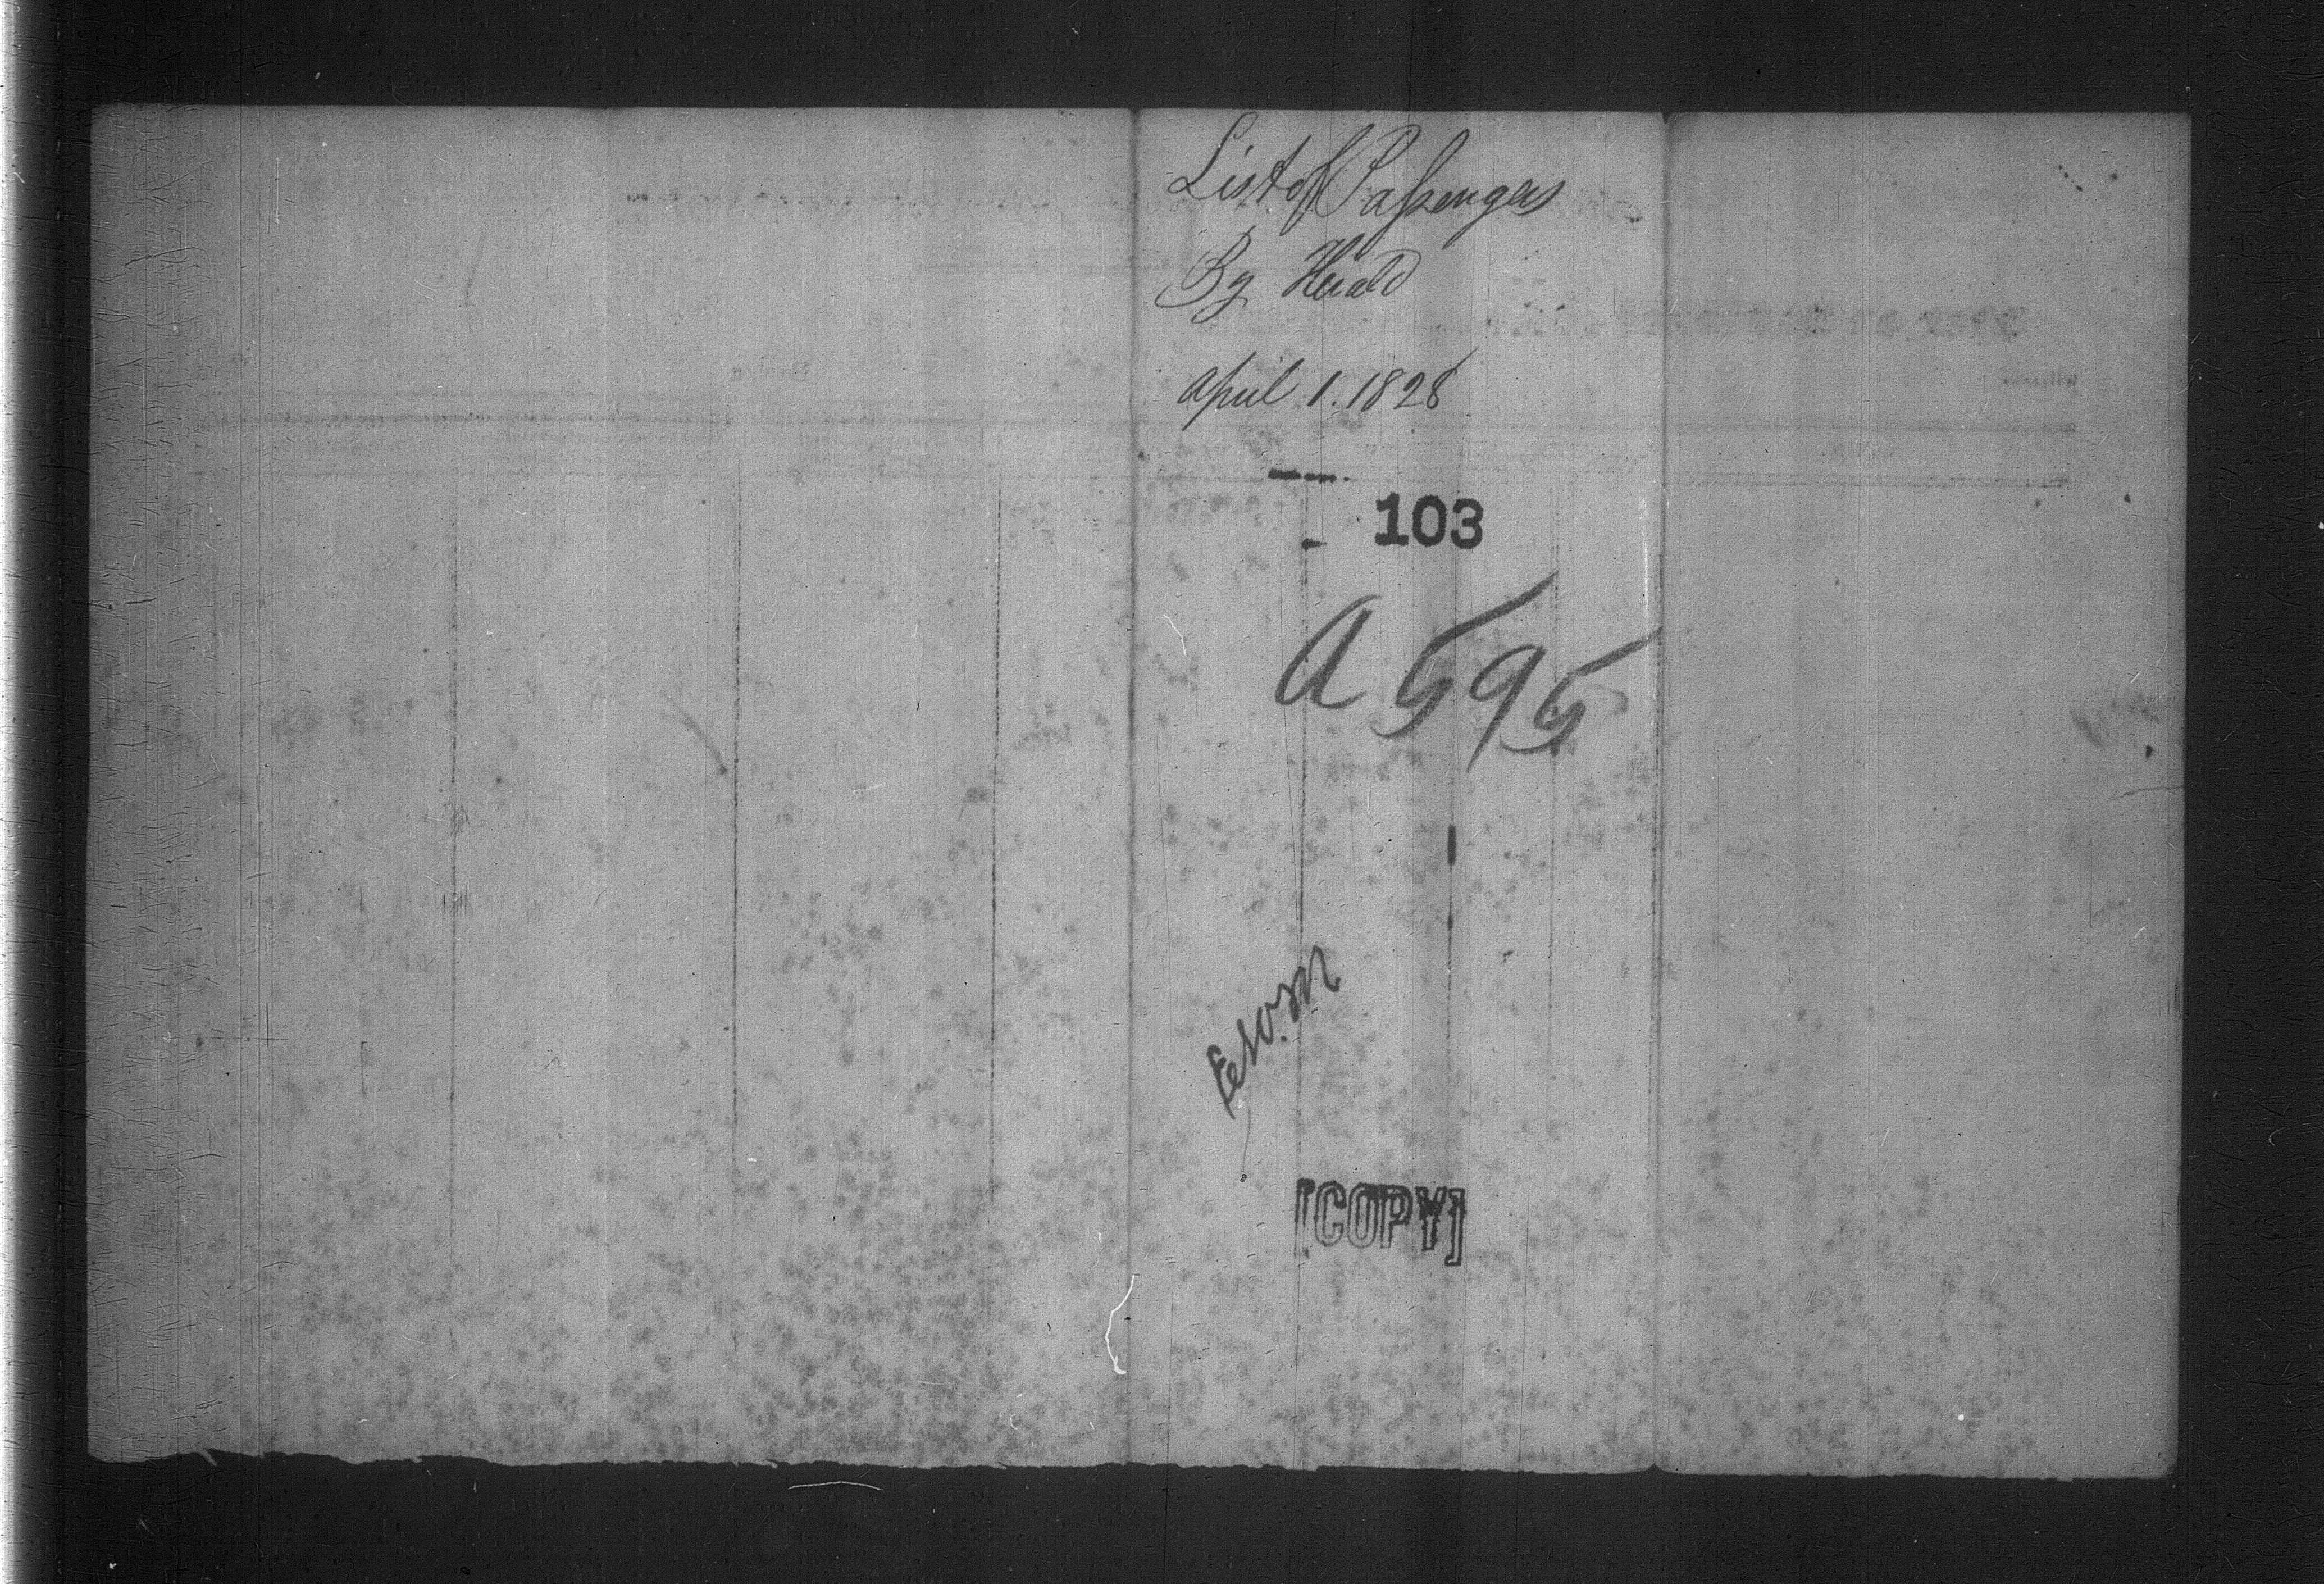 List of Passengers
By Herald
April 1. 1828
103
A 595
[COPY]